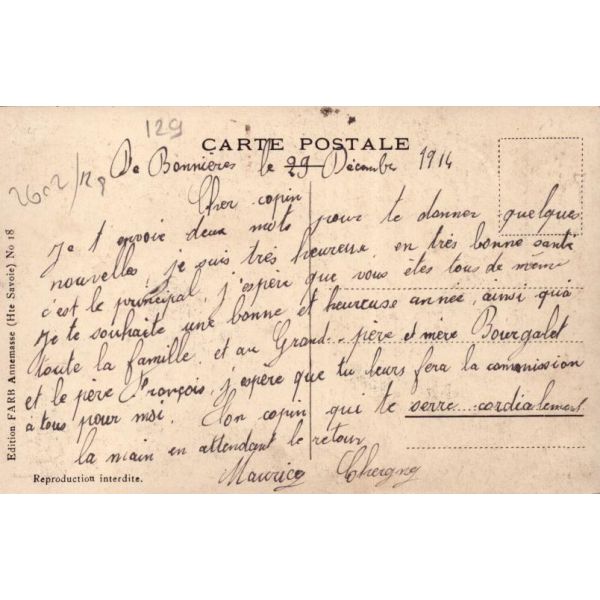 129
CARTE POSTALE
2602/12
De Bonnières le 29 Décembre 1914
Cher copin
Je t envoie deux mots pour te donner quelques
nouvelles, je suis très heureuse en très bonne santé
c'est le principal, j'espère que vous êtes tous de même
Je te souhaite une bonne et heureuse année, ainsi qu'à
toute la famille et au Grand-père et mère Bourgalet
et le père François, j'espère que tu leurs fera la commission
à tous pour moi. Ton copin qui te serre cordialement
la main en attendant le retour
Maurice
Edition FARB Annemasse (Hte Savoie) No 18
Reproduction interdite.